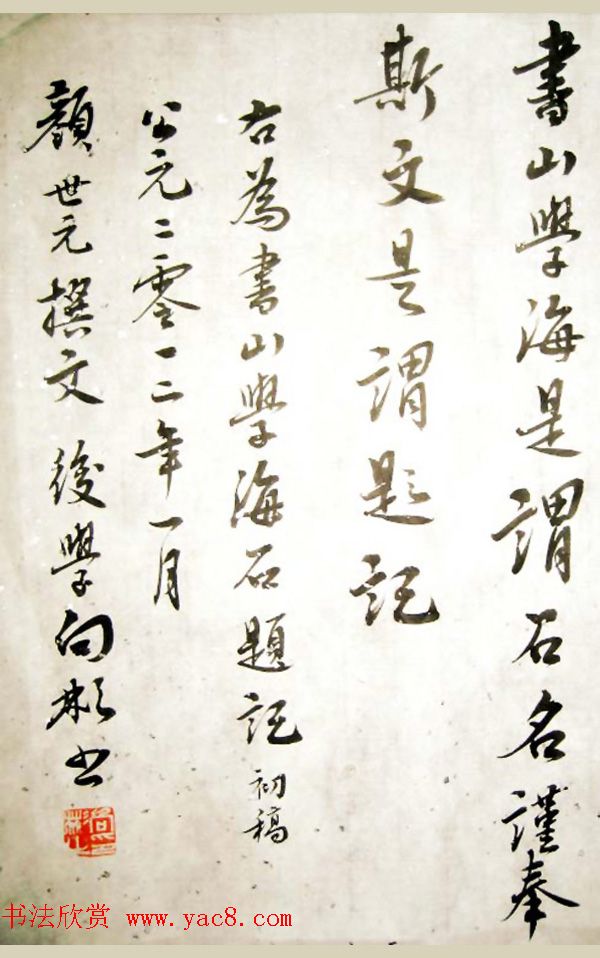 書山學海是謂石名謹奉
斯文是謂題記
右為書山學海石題記初稿
公元二零一二年一月
顏世元撰文後學向彬书
书法欣赏 www.yac8.com